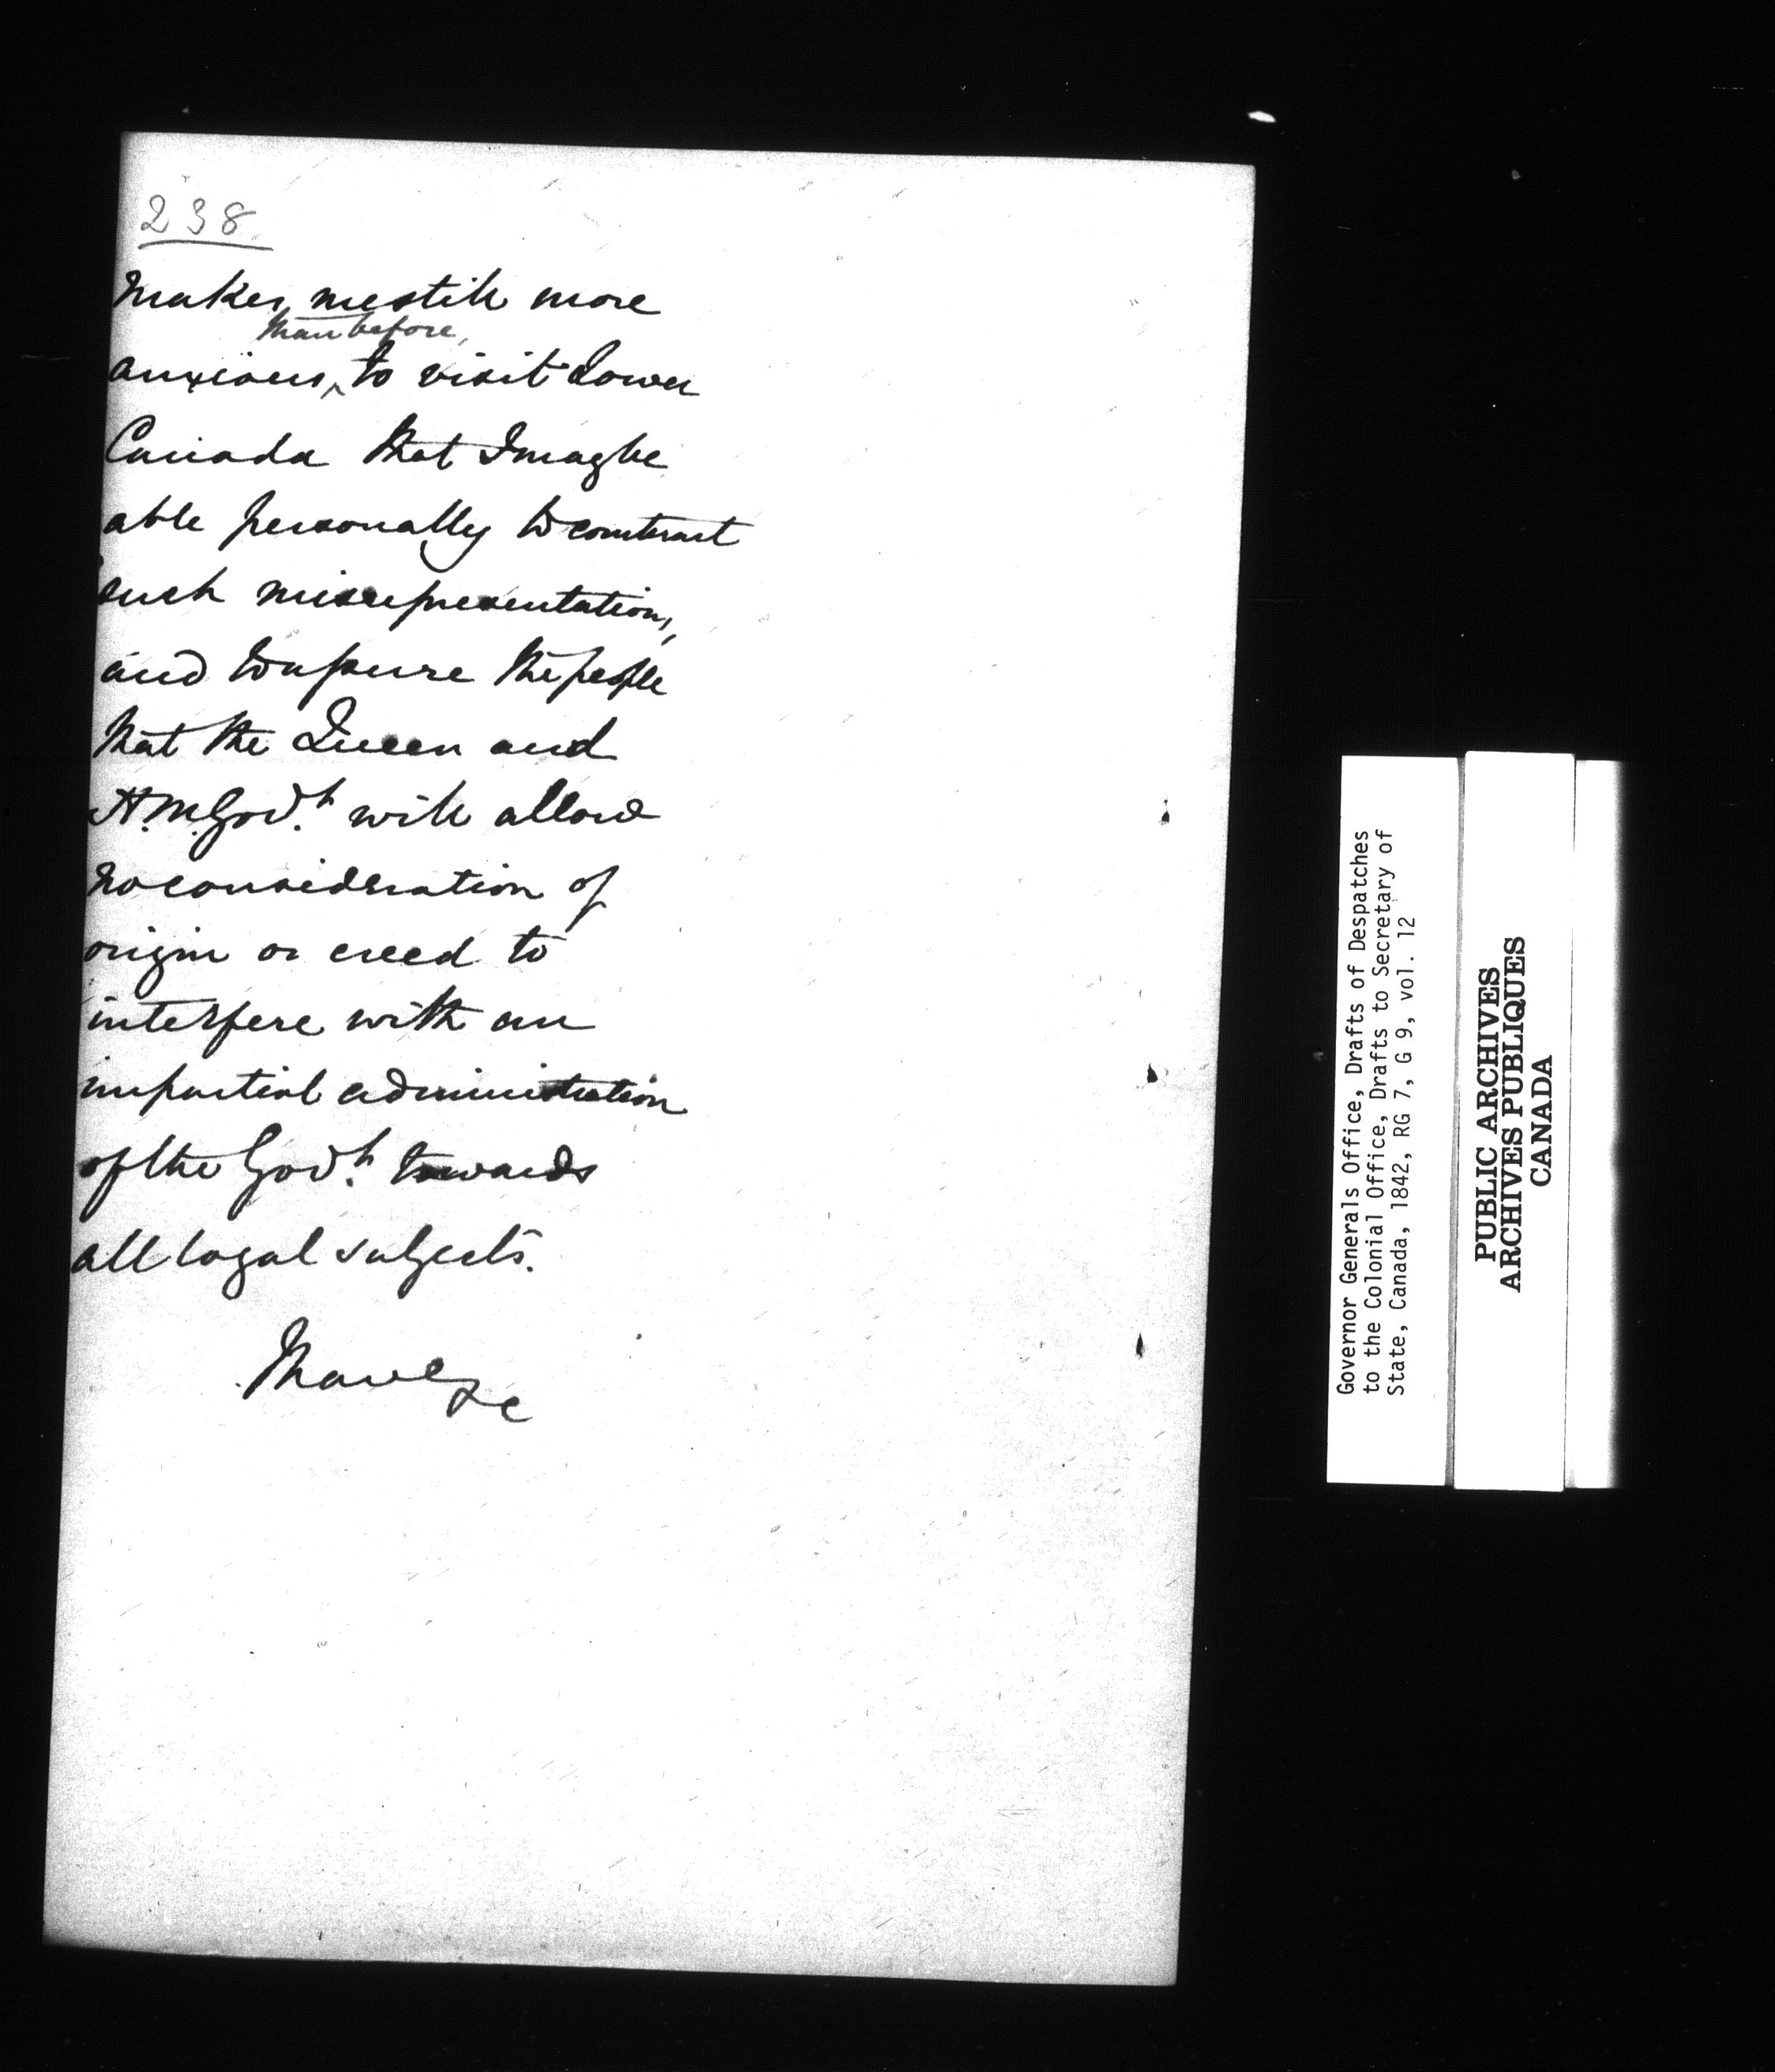 238
makes me still more
than before,
anxious, ^ to visit Lower
Canada that I may be
able personally to counteract
such misrepresentation,
and to assure the people
that the Queen and
H.M. Govt. will allow
no consideration of
origin or creed to
interfere with an
impartial administration
of the Govt. towards
all loyal subjects.
I have &c
Governor Generals Office, Drafts of Despatches
to the Colonial Office, Drafts to Secretary of
State, Canada, 1842, RG 7, G 9, vol. 12
PUBLIC ARCHIVES
ARCHIVES PUBLIQUES
CANADA